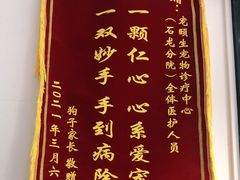 赠：
宠颐生宠物诊疗中心
（石龙分院）全体医护人员
一颗仁心心系爱宠
一双妙手手到病除
狗子家长 敬赠
二〇二一年三月六